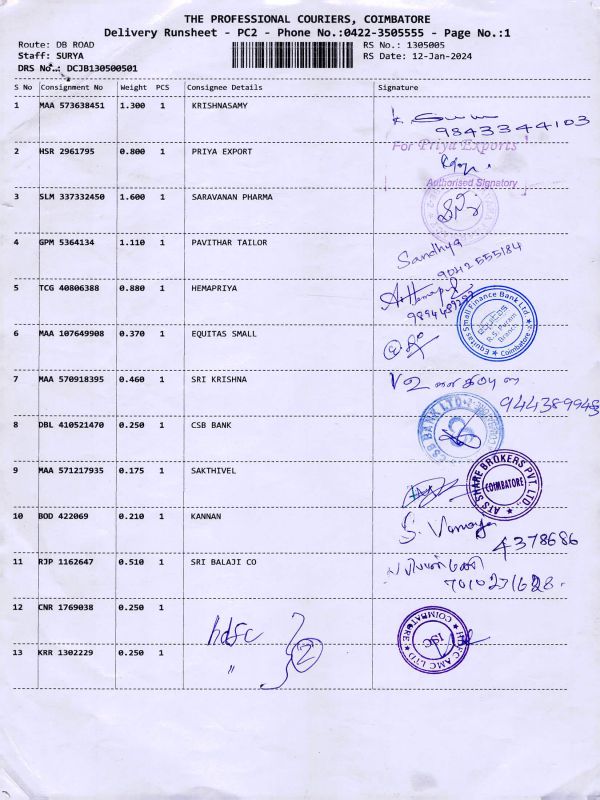 THE PROFESSIONAL COURIERS, COIMBATORE
Delivery Runsheet - PC2 - Phone No.:0422-3505555 - Page No.:1
Route: DB ROAD RS No.: 1305005
Staff: SURYA RS Date: 12-Jan-2024
DRS No.: DCJB130500501
S No Consignment No Weight PCS Consignee Details Signature
1 MAA 573638451 1.300 1 KRISHNASAMY
9843344103
2 HSR 2961795 0.800 1 PRIYA EXPORT
For Priya Exports
Authorised Signatory
3 SLM 337332450 1.600 1 SARAVANAN PHARMA
4 GPM 5364134 1.110 1 PAVITHAR TAILOR
Sandhya
9042555184
5 TCG 40806388 0.880 1 HEMAPRIYA
6 MAA 107649908 0.370 1 EQUITAS SMALL
Equitas Small Finance Bank Ltd
R.S. Puram
Branch
Coimbatore
7 MAA 570918395 0.460 1 SRI KRISHNA
8 DBL 410521470 0.250 1 CSB BANK
CSB BANK LTD
9 MAA 571217935 0.175 1 SAKTHIVEL
ATS SHARE BROKERS PVT. LTD.,
COIMBATORE
10 BOD 422069 0.210 1 KANNAN
4378686
11 RJP 1162647 0.510 1 SRI BALAJI CO
7010271628
12 CNR 1769038 0.250 1
hdfc
2
HDFC AMC LTD
ISC
COIMBATORE
13 KRR 1302229 0.250 1
"